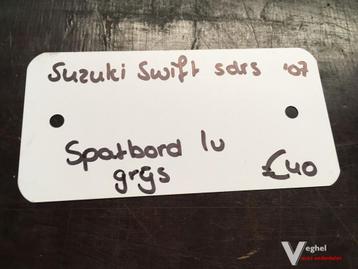 Suzuki Swift sdrs '07
Spatbord lv
grijs
€40
Veghel
auto onderdelen